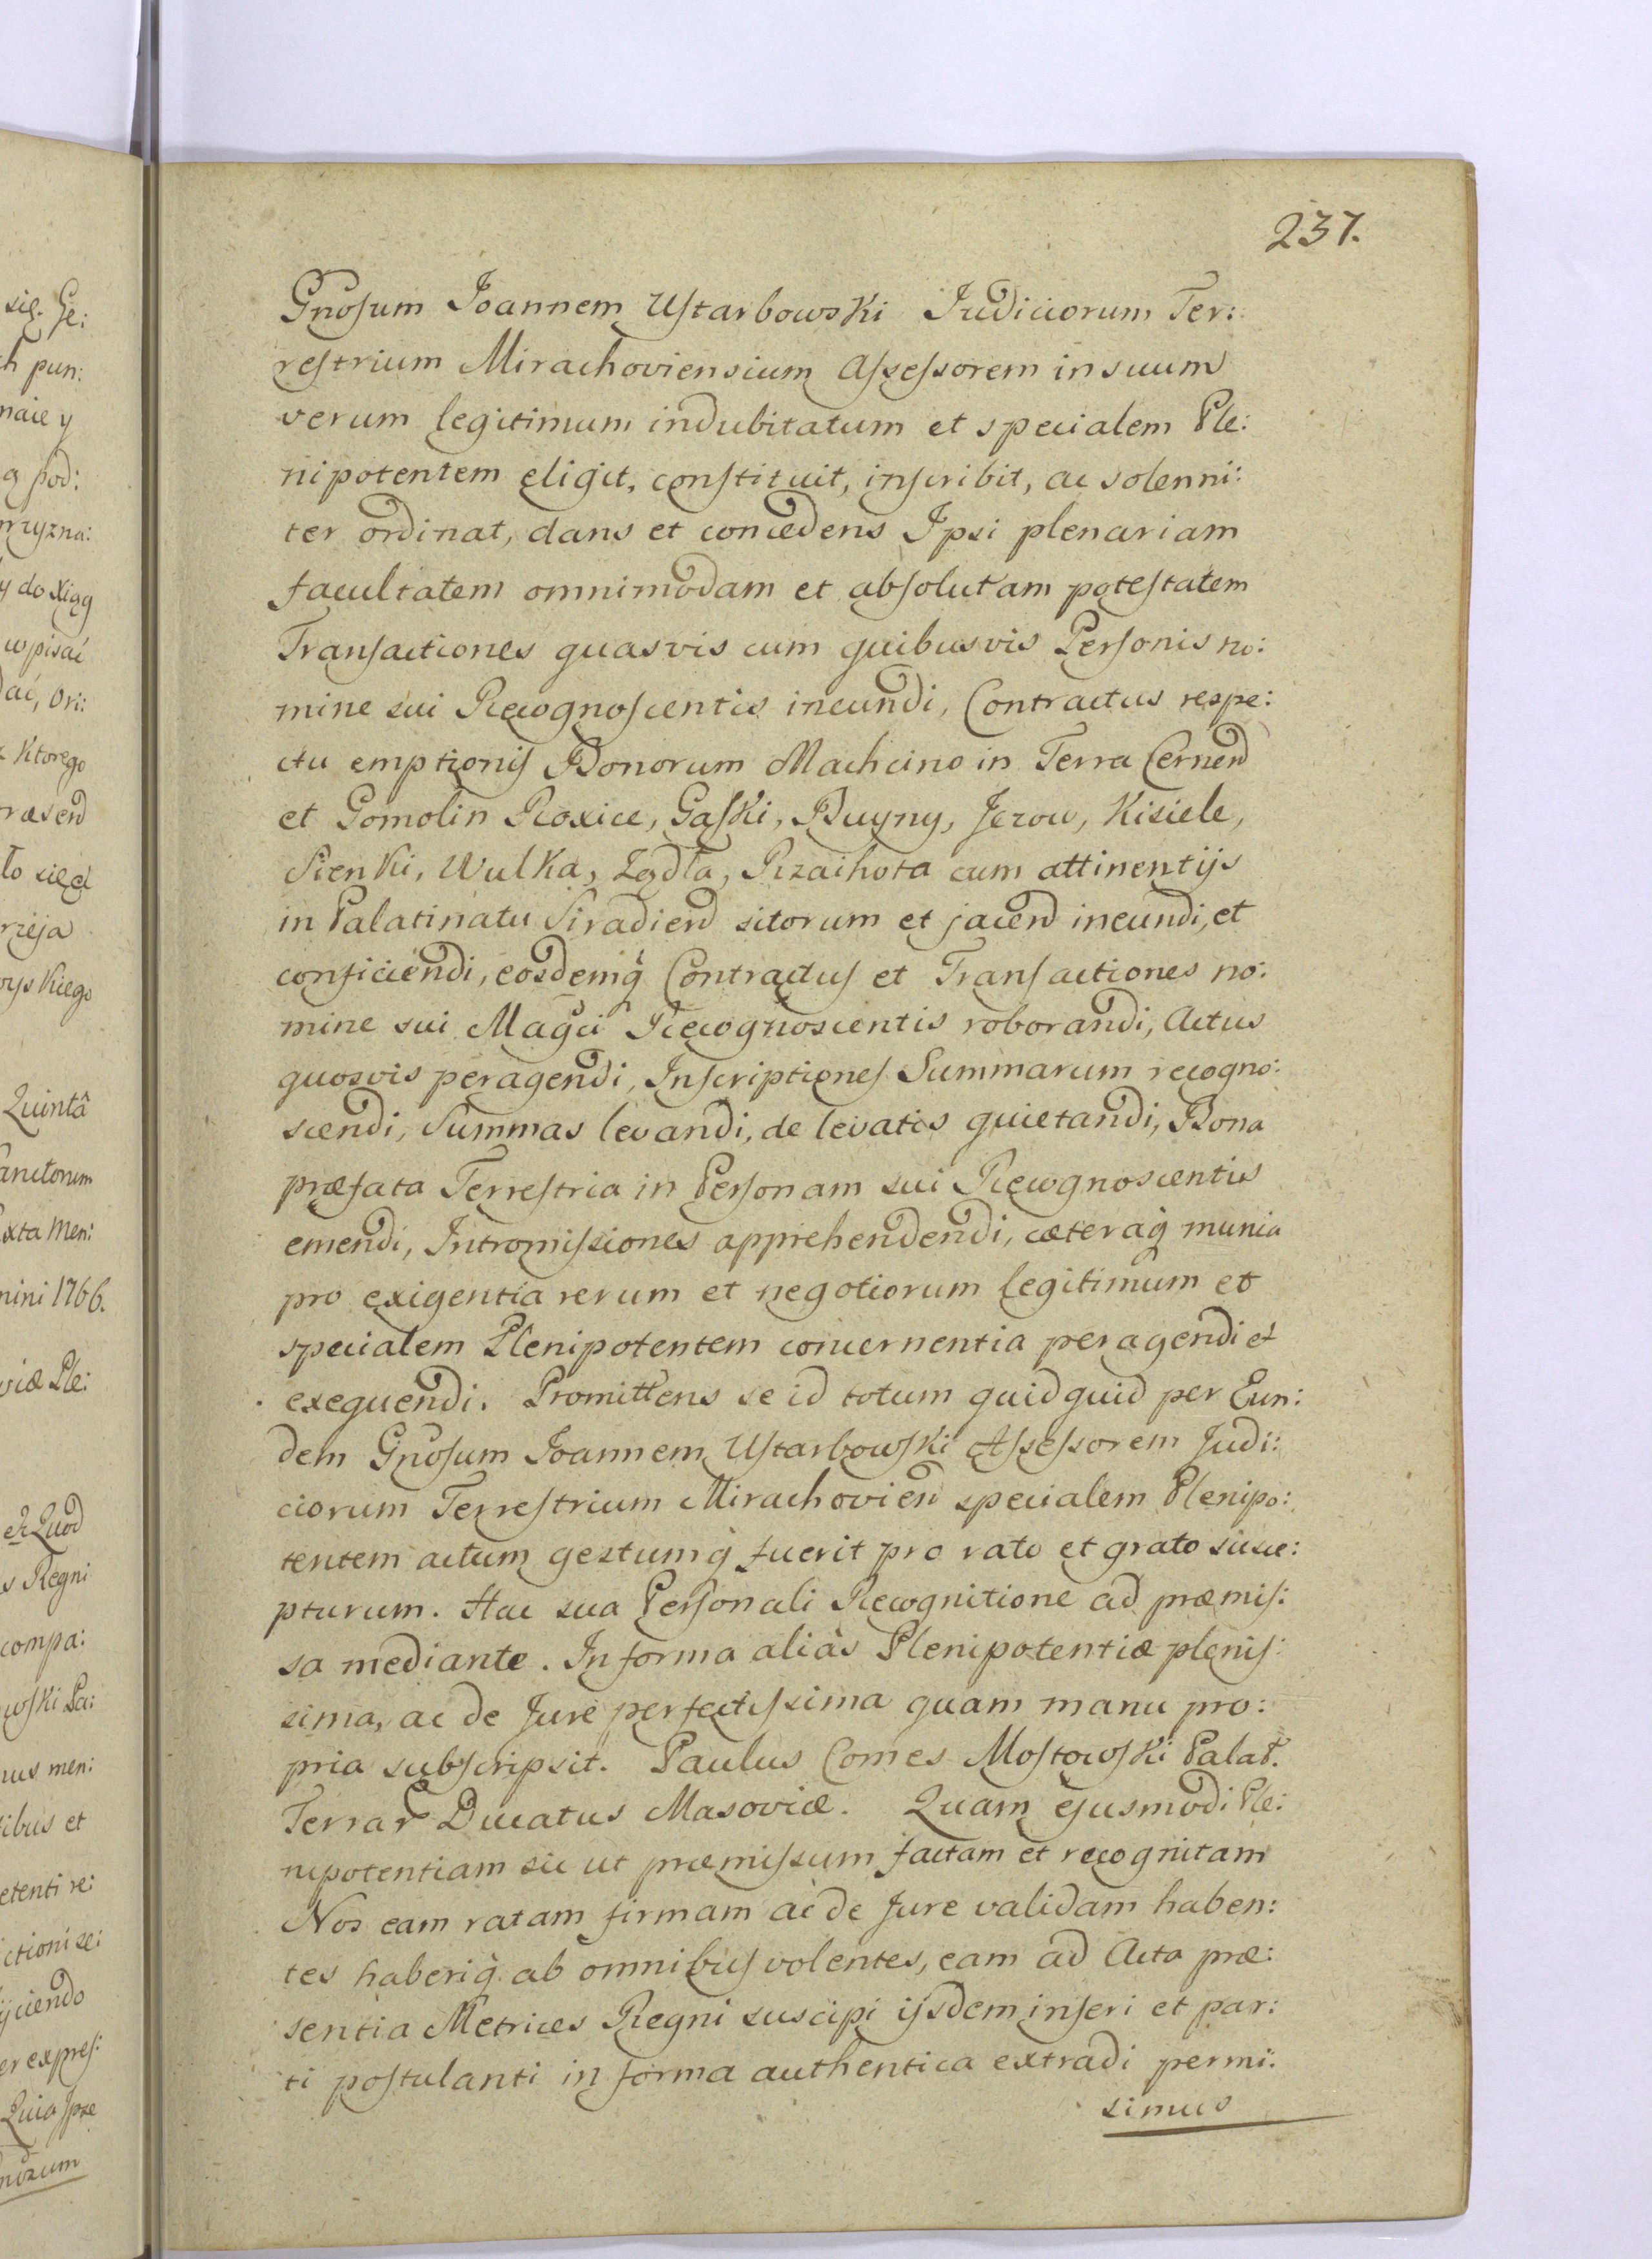 237.
Gnosum Joannem Ustarbowski Judiciorum Ter:
restrium Mirachoviensium Assessorem in suum
verum legitimum indubitatum et specialem Ple:
nipotentem eligit, constituit, inscribit, ac solenni:
ter ordinat, dans et concedens Ipsi plenariam
facultatem omnimodam et absolutam potestatem
Transactiones quasvis cum quibusvis Personis no:
mine sui Recognoscentis ineundi, Contractus respe:
ctu emptionis Bonorum Machcino in Terra Cernen
et Gomolin Roxice, Gaski, Buyny, Jezow, Kisiele,
Sienki, Wulka, Ządła, Rzaihota cum attinentijs
in Palatinatu Siradien sitorum et jacen ineundi, et
conficiendi, eosdemq Contractus et Transactiones no:
mine sui Magci Recognoscentis roborandi, Actus
quosvis peragendi, Inscriptiones Summarum recogno:
scendi, Summas levandi, de levatis quietandi, Bona
præfata Terrestria in Personam sui Recognoscentis
emendi, Intromissiones apprehendendi, cæteraq munia
pro exigentia rerum et negotiorum legitimum et
specialem Plenipotentem concernentia peragendi et
exequendi. Promittens se id totum quidquid per Eun:
dem Gnosum Joannem Ustarbowski Assessorem Judi:
ciorum Terrestrium Mirachovien specialem Plenipo:
tentem actum gestumq fuerit pro rato et grato susce:
pturum. Hac sua Personali Recognitione ad præmis:
sa mediante. In forma aliàs Plenipotentiæ plenis:
sima, ac de Jure perfectissima quam manu pro:
pria subscripsit. Paulus Comes Mostowski Palat.
Terrar Ducatus Masoviæ. Quam ejusmodi Ple:
nipotentiam sic ut præmissum factam et recognitam
Nos eam ratam firmam ac de Jure validam haben:
tes haberiq ab omnibus volentes, eam ad Acta præ:
sentia Metrices Regni suscipi ijsdem inseri et par:
ti postulanti in forma authentica extradi permi:
simus